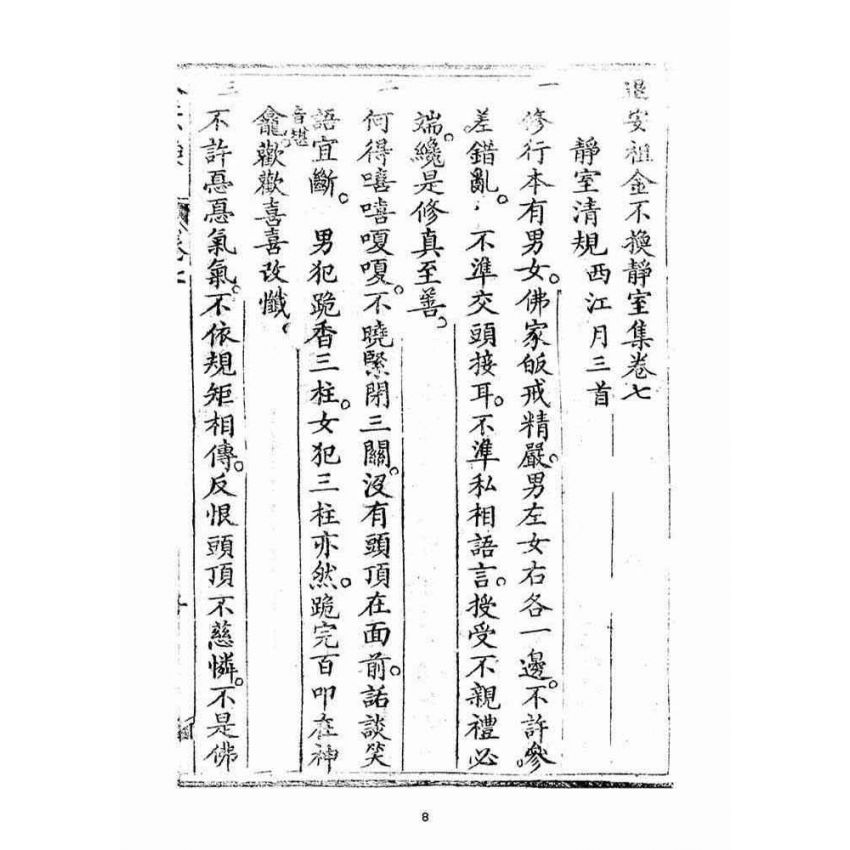 退安祖金不換靜室集卷七
靜室清規西江月三首
一
修行本有男女。佛家皈戒精嚴。男左女右各一邊。不許參
差錯亂。不準交頭接耳。不準私相語言。授受不親禮必
端。纔是修真至善。
二
何得嘻嘻嗄嗄。不曉緊閉三關。沒有頭頂在面前。話談笑
語宜斷。男犯跪香三柱。女犯三柱亦然。跪完百叩在神
龕音堪。歡歡喜喜改懺。
三
不許惪惪氣氣。不依規矩相傳。反恨頭頂不慈憐。不是佛
8